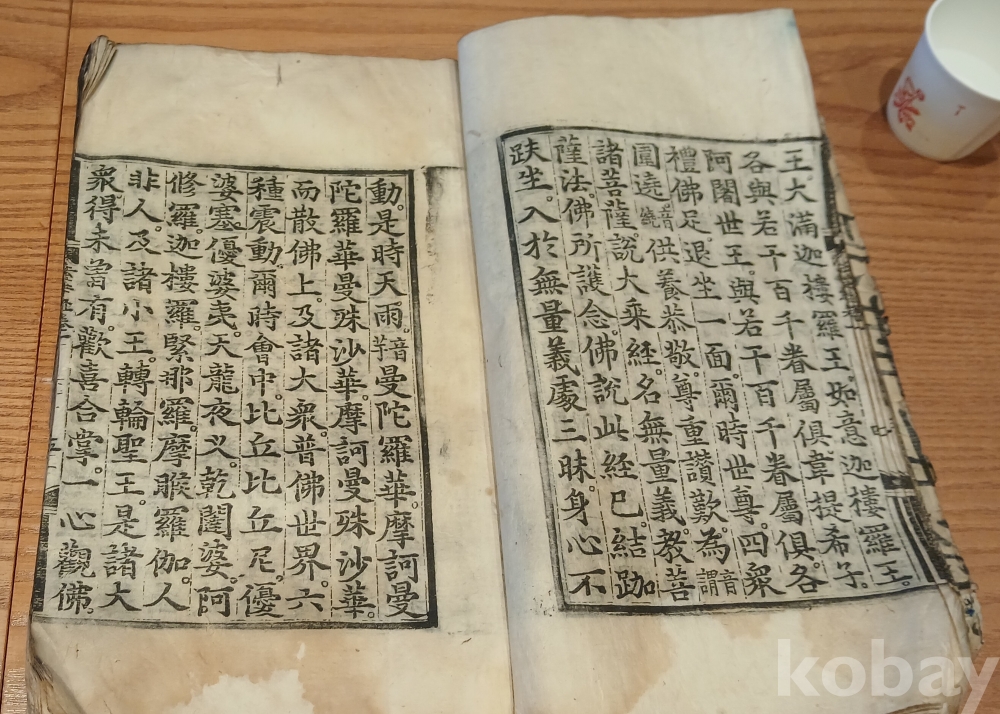 王大滿迦樓羅王。如意迦樓羅王。
各與若干百千眷屬俱。韋提希子。
阿闍世王。與若干百千眷屬俱。各
禮佛足退坐一面。爾時世尊。四衆
圍遶音饒供養恭敬。尊重讚歎。為音謂
諸菩薩。說大乘經。名無量義。教菩
薩法。佛所護念。佛說此經已。結跏
趺坐。入於無量義處三昧。身心不
動。是時天雨音芋曼陀羅華。摩訶曼
陀羅華。曼殊沙華。摩訶曼殊沙華。
而散佛上。及諸大衆。普佛世界。六
種震動。爾時會中。比丘比丘尼。優
婆塞。優婆夷。天龍夜叉。乾闥婆。阿
修羅。迦樓羅。緊那羅。摩睺羅伽。人
非人。及諸小王。轉輪聖王。是諸大
衆得未曾有。歡喜合掌。一心觀佛。
kobay